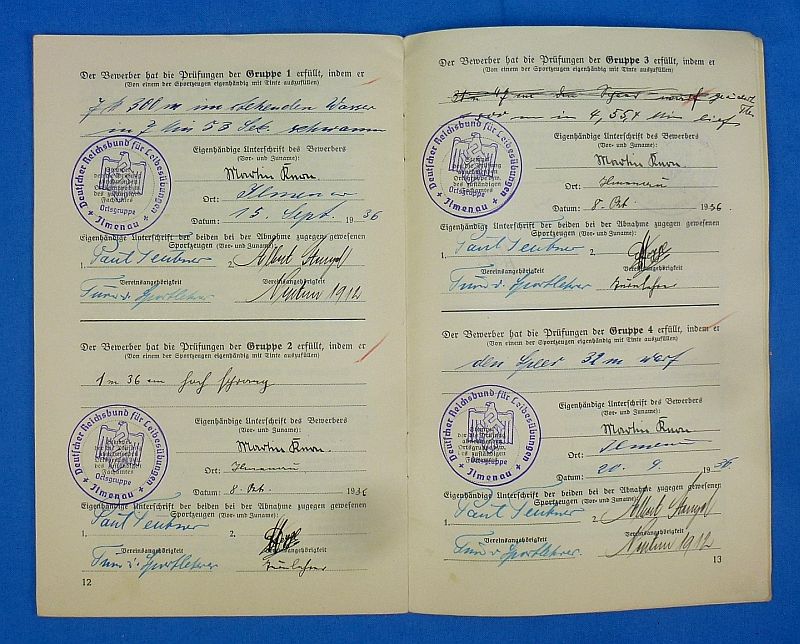 Der Bewerber hat die Prüfungen der Gruppe 1 erfüllt, indem er
(Von einem der Sportzeugen eigenhändig mit Tinte auszufüllen)
300 m im stehenden Wasser
in 7 Min 53 Sek. schwamm
Eigenhändige Unterschrift des Bewerbers
(Vor- und Zuname):
Deutscher Reichsbund für Leibesübungen
Ortsgruppe
Ilmenau
Martin
Ort: Ilmenau
Datum: 15. Sept. 1936
Eigenhändige Unterschrift der beiden bei der Abnahme zugegen gewesenen
Sportzeugen (Vor- und Zuname):
1. Paul Teubner 2. Albert
Vereinsangehörigkeit
Turn u. Sportlehrer 1912
Der Bewerber hat die Prüfungen der Gruppe 2 erfüllt, indem er
(Von einem der Sportzeugen eigenhändig mit Tinte auszufüllen)
1 m 36 cm hoch sprang
Eigenhändige Unterschrift des Bewerbers
(Vor- und Zuname):
Deutscher Reichsbund für Leibesübungen
Ortsgruppe
Ilmenau
Martin
Ort: Ilmenau
Datum: 8. Okt. 1936
Eigenhändige Unterschrift der beiden bei der Abnahme zugegen gewesenen
Sportzeugen (Vor- und Zuname):
1. Paul Teubner 2.
Vereinsangehörigkeit Vereinsangehörigkeit
Turn u. Sportlehrer
12
Der Bewerber hat die Prüfungen der Gruppe 3 erfüllt, indem er
(Von einem der Sportzeugen eigenhändig mit Tinte auszufüllen)
m in Min lief
Eigenhändige Unterschrift des Bewerbers
(Vor- und Zuname):
Deutscher Reichsbund für Leibesübungen
Ortsgruppe
Ilmenau
Martin
Ort: Ilmenau
Datum: 8. Okt. 1936.
Eigenhändige Unterschrift der beiden bei der Abnahme zugegen gewesenen
Sportzeugen (Vor- und Zuname):
1. Paul Teubner 2.
Vereinsangehörigkeit Vereinsangehörigkeit
Turn u. Sportlehrer
Der Bewerber hat die Prüfungen der Gruppe 4 erfüllt, indem er
(Von einem der Sportzeugen eigenhändig mit Tinte auszufüllen)
den Speer 32 m warf
Eigenhändige Unterschrift des Bewerbers
(Vor- und Zuname):
Deutscher Reichsbund für Leibesübungen
Ortsgruppe
Ilmenau
Martin
Ort: Ilmenau
Datum: 20. 9. 1936
Eigenhändige Unterschrift der beiden bei der Abnahme zugegen gewesenen
Sportzeugen (Vor- und Zuname):
1. Paul Teubner 2. Albert
Vereinsangehörigkeit
Turn u. Sportlehrer 1912
13